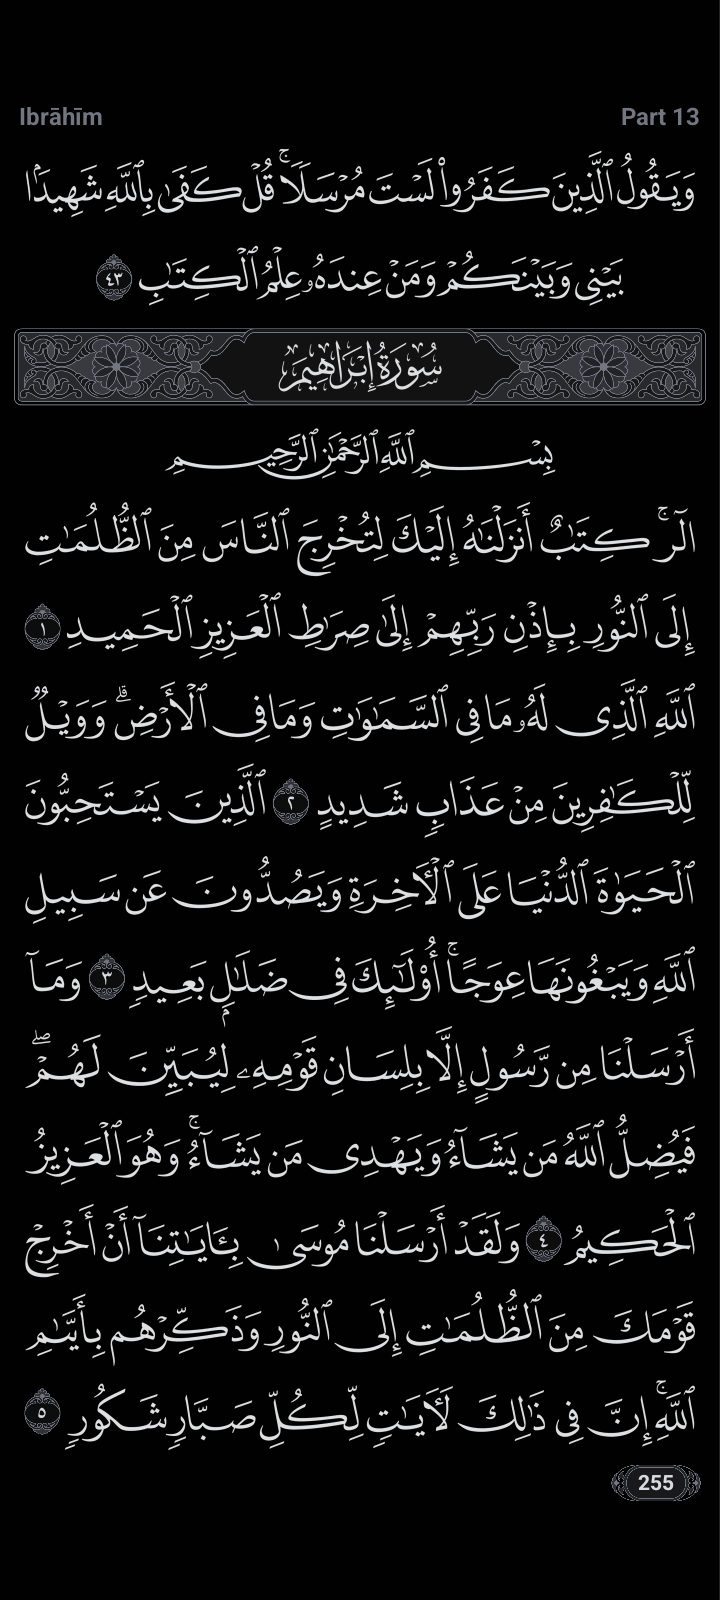 Ibrāhīm Part 13
وَيَقُولُ ٱلَّذِينَ كَفَرُوا۟ لَسْتَ مُرْسَلًا ۚ قُلْ كَفَىٰ بِٱللَّهِ شَهِيدًۢا
بَيْنِى وَبَيْنَكُمْ وَمَنْ عِندَهُۥ عِلْمُ ٱلْكِتَـٰبِ ٤٣
سُورَةُ إِبْرَاهِيمَ
بِسْمِ ٱللَّهِ ٱلرَّحْمَـٰنِ ٱلرَّحِيمِ
الٓر ۚ كِتَـٰبٌ أَنزَلْنَـٰهُ إِلَيْكَ لِتُخْرِجَ ٱلنَّاسَ مِنَ ٱلظُّلُمَـٰتِ
إِلَى ٱلنُّورِ بِإِذْنِ رَبِّهِمْ إِلَىٰ صِرَٰطِ ٱلْعَزِيزِ ٱلْحَمِيدِ ١
ٱللَّهِ ٱلَّذِى لَهُۥ مَا فِى ٱلسَّمَـٰوَٰتِ وَمَا فِى ٱلْأَرْضِ ۗ وَوَيْلٌ
لِّلْكَـٰفِرِينَ مِنْ عَذَابٍ شَدِيدٍ ٢ ٱلَّذِينَ يَسْتَحِبُّونَ
ٱلْحَيَوٰةَ ٱلدُّنْيَا عَلَى ٱلْـَٔاخِرَةِ وَيَصُدُّونَ عَن سَبِيلِ
ٱللَّهِ وَيَبْغُونَهَا عِوَجًا ۚ أُو۟لَـٰٓئِكَ فِى ضَلَـٰلٍۭ بَعِيدٍ ٣ وَمَآ
أَرْسَلْنَا مِن رَّسُولٍ إِلَّا بِلِسَانِ قَوْمِهِۦ لِيُبَيِّنَ لَهُمْ ۖ
فَيُضِلُّ ٱللَّهُ مَن يَشَآءُ وَيَهْدِى مَن يَشَآءُ ۚ وَهُوَ ٱلْعَزِيزُ
ٱلْحَكِيمُ ٤ وَلَقَدْ أَرْسَلْنَا مُوسَىٰ بِـَٔايَـٰتِنَآ أَنْ أَخْرِجْ
قَوْمَكَ مِنَ ٱلظُّلُمَـٰتِ إِلَى ٱلنُّورِ وَذَكِّرْهُم بِأَيَّىٰمِ
ٱللَّهِ ۚ إِنَّ فِى ذَٰلِكَ لَـَٔايَـٰتٍ لِّكُلِّ صَبَّارٍ شَكُورٍ ٥
255